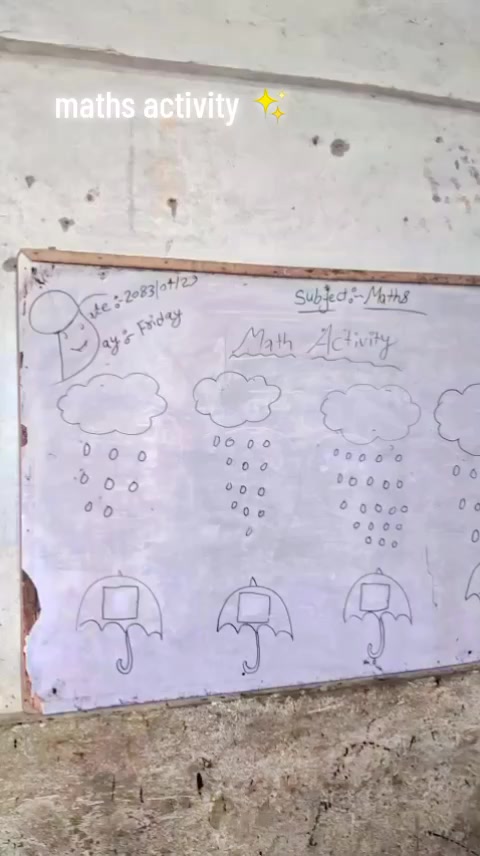 maths activity ✨
Date :- 2083/04/22
Subject :- Maths
Day :- Friday
Math Activity